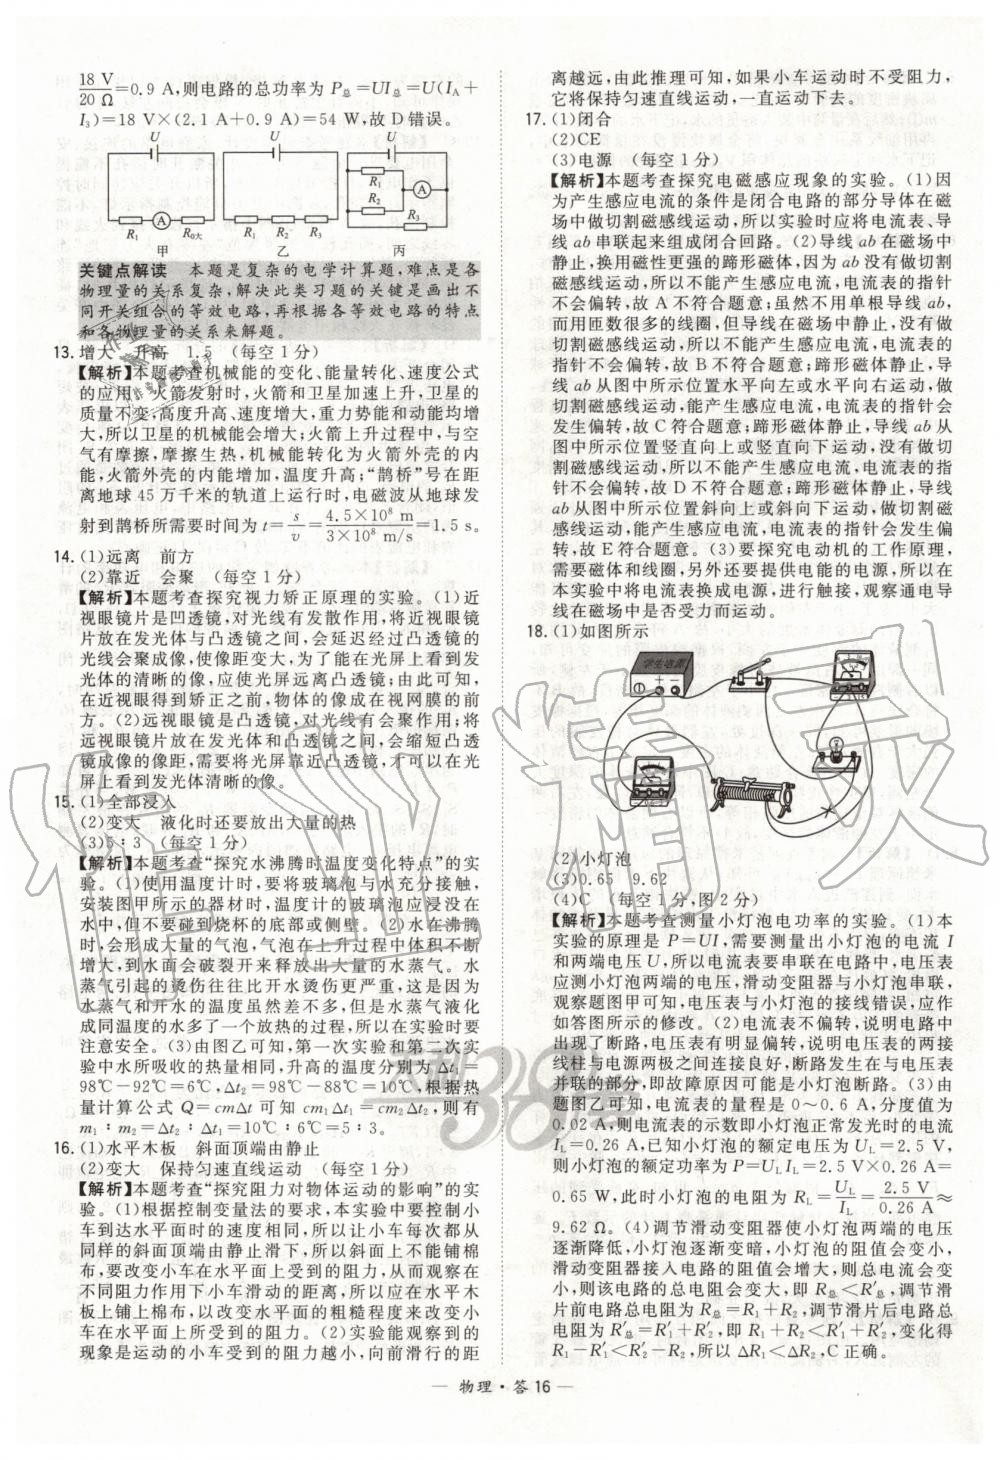 18 V/20 Ω=0.9 A,则电路的总功率为 P总=UI总=U(IA+
I3)=18 V×(2.1 A+0.9 A)=54 W,故 D 错误。
U U U
R1 A R0大 R1 R2 R3 R1 R2 A R3
甲 乙 丙
关键点解读 本题是复杂的电学计算题,难点是各
物理量的关系复杂,解决此类习题的关键是画出不
同开关组合的等效电路,再根据各等效电路的特点
和各物理量的关系来解题。
13. 增大 升高 1.5 (每空 1 分)
【解析】本题考查机械能的变化、能量转化、速度公式
的应用。火箭发射时,火箭和卫星加速上升,卫星的
质量不变,高度升高、速度增大,重力势能和动能均增
大,所以卫星的机械能会增大;火箭上升过程中,与空
气有摩擦,摩擦生热,机械能转化为火箭外壳的内
能,火箭外壳的内能增加,温度升高;“鹊桥”号在距
离地球 45 万千米的轨道上运行时,电磁波从地球发
射到鹊桥所需要时间为 t=s/v=4.5×10⁸ m/3×10⁸ m/s=1.5 s。
14. (1)远离 前方
(2)靠近 会聚 (每空 1 分)
【解析】本题考查探究视力矫正原理的实验。(1)近
视眼镜片是凹透镜,对光线有发散作用,将近视眼镜
片放在发光体与凸透镜之间,会延迟经过凸透镜的
光线会聚成像,使像距变大,为了能在光屏上看到发
光体的清晰的像,应使光屏远离凸透镜;由此可知,
在近视眼得到矫正之前,物体的像成在视网膜的前
方。(2)远视眼镜是凸透镜,对光线有会聚作用;将
远视眼镜片放在发光体和凸透镜之间,会缩短凸透
镜成像的像距,需要将光屏靠近凸透镜,才可以在光
屏上看到发光体清晰的像。
15. (1)全部浸入
(2)变大 液化时还要放出大量的热
(3)5∶3 (每空 1 分)
【解析】本题考查“探究水沸腾时温度变化特点”的实
验。(1)使用温度计时,要将玻璃泡与水充分接触,
安装图甲所示的器材时,温度计的玻璃泡应浸没在
水中,但不要碰到烧杯的底部或侧壁。(2)水在沸腾
时,会形成大量的气泡,气泡在上升过程中体积不断
增大,到水面会破裂开来释放出大量的水蒸气。水
蒸气引起的烫伤往往比开水烫伤更严重,这是因为
水蒸气和开水的温度虽然差不多,但是水蒸气液化
成同温度的水多了一个放热的过程,所以在实验时要
注意安全。(3)由图乙可知,第一次实验和第二次实
验中水所吸收的热量相同,升高的温度分别为 Δt1=
98℃-92℃=6℃,Δt2=98℃-88℃=10℃,根据热
量计算公式 Q=cmΔt 可知 cm1Δt1=cm2Δt2,则有
m1∶m2=Δt2∶Δt1=10℃∶6℃=5∶3。
16. (1)水平木板 斜面顶端由静止
(2)变大 保持匀速直线运动 (每空 1 分)
【解析】本题考查“探究阻力对物体运动的影响”的实
验。(1)根据控制变量法的要求,本实验中要控制小
车到达水平面时的速度相同,所以让小车每次都从
同样的斜面顶端由静止滑下,所以斜面上不能铺棉
布,要改变小车在水平面上受到的阻力,从而观察在
不同阻力作用下小车滑动的距离,所以应在水平木
板上铺上棉布,以改变水平面的粗糙程度来改变小
车在水平面上所受到的阻力。(2)实验能观察到的
现象是运动的小车受到的阻力越小,向前滑行的距
离越远,由此推理可知,如果小车运动时不受阻力,
它将保持匀速直线运动,一直运动下去。
17. (1)闭合
(2)CE
(3)电源 (每空 1 分)
【解析】本题考查探究电磁感应现象的实验。(1)因
为产生感应电流的条件是闭合电路的部分导体在磁
场中做切割磁感线运动,所以实验时应将电流表、导
线 ab 串联起来组成闭合回路。(2)导线 ab 在磁场中
静止,换用磁性更强的蹄形磁体,因为 ab 没有做切割
磁感线运动,所以不能产生感应电流,电流表的指针
不会偏转,故 A 不符合题意;虽然不用单根导线 ab,
而用匝数很多的线圈,但导线在磁场中静止,没有做
切割磁感线运动,所以不能产生感应电流,电流表的
指针不会偏转,故 B 不符合题意;蹄形磁体静止,导线
ab 从图中所示位置水平向左或水平向右运动,做切
割磁感线运动,能产生感应电流,电流表的指针会
发生偏转,故 C 符合题意;蹄形磁体静止,导线 ab 从
图中所示位置竖直向上或竖直向下运动,没有做切
割磁感线运动,所以不能产生感应电流,电流表的指
针不会偏转,故 D 不符合题意;蹄形磁体静止,导线
ab 从图中所示位置斜向上或斜向下运动,做切割磁
感线运动,能产生感应电流,电流表的指针会发生偏
转,故 E 符合题意。(3)要探究电动机的工作原理,
需要磁体和线圈,另外还要提供电能的电源,所以在
本实验中将电流表换成电源,进行触接,观察通电导
线在磁场中是否受力而运动。
18. (1)如图所示
学生电源
(2)小灯泡
(3)0.65 9.62
(4)C (每空 1 分,图 2 分)
【解析】本题考查测量小灯泡电功率的实验。(1)本
实验的原理是 P=UI,需要测量出小灯泡的电流 I
和两端电压 U,所以电流表要串联在电路中,电压表
应测小灯泡两端的电压,滑动变阻器与小灯泡串联,
观察题图甲可知,电压表与小灯泡的接线错误,应作
如答图所示的修改。(2)电流表不偏转,说明电路中
出现了断路,电压表有明显偏转,说明电压表的两接
线柱与电源两极之间连接良好,断路发生在与电压表
并联的部分,即故障原因可能是小灯泡断路。(3)由
题图乙可知,电流表的量程是 0～0.6 A,分度值为
0.02 A,则电流表的示数即小灯泡正常发光时的电流
IL=0.26 A,已知小灯泡的额定电压为 UL=2.5 V,
则小灯泡的额定功率为 P=ULIL=2.5 V×0.26 A=
0.65 W,此时小灯泡的电阻为 RL=UL/IL=2.5 V/0.26 A≈
9.62 Ω。(4)调节滑动变阻器使小灯泡两端的电压
逐渐降低,小灯泡逐渐变暗,小灯泡的阻值会变小,
滑动变阻器接入电路的阻值会增大,则总电流会变
小,则该电路的总电阻会变大,即 R总<R′总,调节滑
片前电路总电阻为 R总=R1+R2,调节滑片后电路总
电阻为 R′总=R′1+R′2,即 R1+R2<R′1+R′2,变化得
R1-R′1<R′2-R2,所以 ΔR1<ΔR2,C 正确。
— 物理·答 16 —
作业精灵